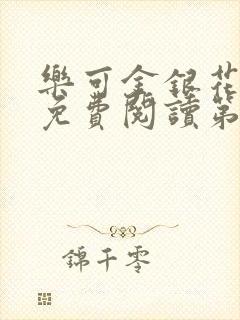 樂可金銀花
免費閱讀第
錦千零